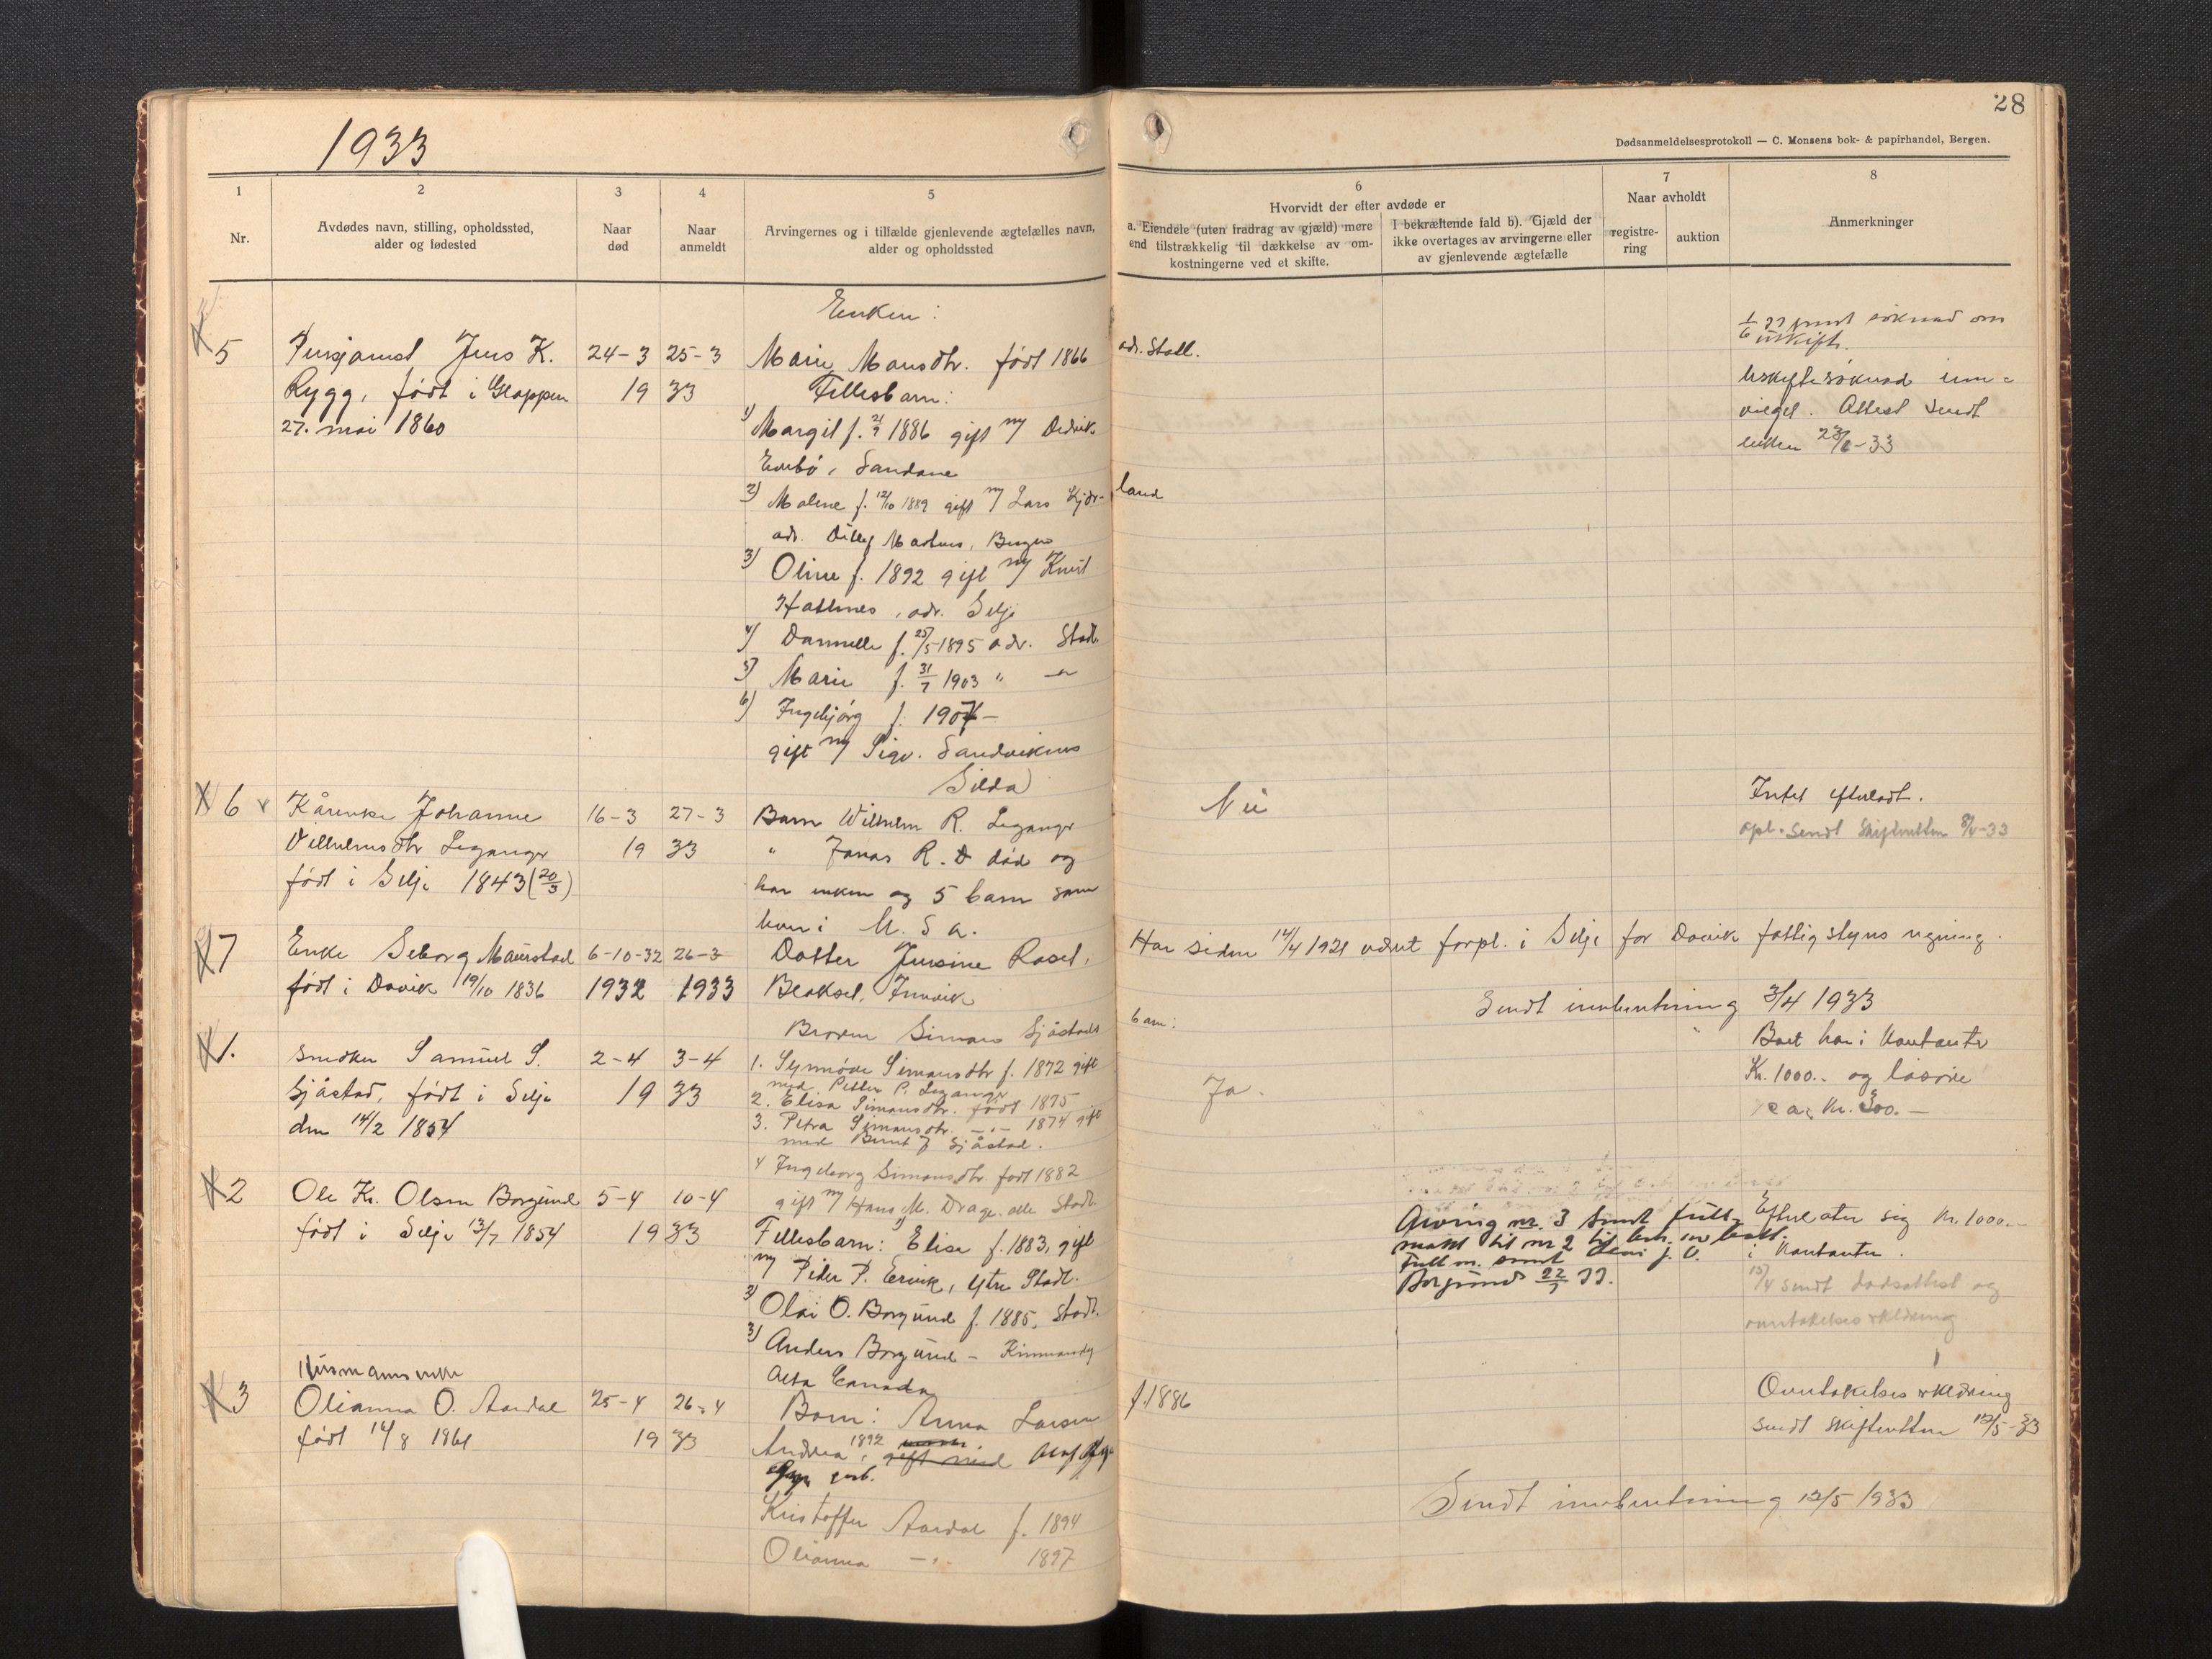 28
1933
Dødsanmeldelsesprotokoll — C. Monsens bok- & papirhandel, Bergen.
1
2
3
4
5
6
7
8
Nr.
Avdødes navn, stilling, opholdssted,
alder og fødested
Naar
død
Naar
anmeldt
Arvingernes og i tilfælde gjenlevende ægtefælles navn,
alder og opholdssted
Hvorvidt der efter avdøde er
a. Eiendele (uten fradrag av gjæld) mere
end tilstrækkelig til dækkelse av om-
kostningerne ved et skifte.
I bekræftende fald b). Gjæld der
ikke overtages av arvingerne eller
av gjenlevende ægtefælle
Naar avholdt
registre-
ring
auktion
Anmerkninger
Enken:
5 Jens K. 24-3 25-3 Marie Mansdtr. født 1866 adr. Stadl.
Rygg, født i Gloppen 19 33 Fellesbarn:
27. mai 1860
1) Margit f. 1886 gift m/ Didrik
Evebø, Sandane
2) Malene f. 12/10 1889 gift m/ Lars Kjør-
land
adr. Bergen
3) Oline f. 1892 gift m/ Knut
adr. Selje
4) f. 25/5 1895 adr. Stadl.
5) Marie f. 31/7 1903 "
6) Ingebjørg f. 1907 -
gift m/ Sigv. Sandviknes
Silda
søknad om
uskifte.
Uskiftesøknad inn-
vilget. Attest sendt
enken 23/6-33
6 Kårenke Johanne 16-3 27-3 Barn Wilhelm R. Leganger Nei Intet efterladt.
Vilhelmsdtr Leganger 19 33 " Jonas R. død og
opl. sendt Skifteretten 8/5-33
født i Selje 1843 (20/3) har enken og 5 barn som
bor i U. S a.
7 Enke Seborg Maurstad 6-10-32 26-3 Datter Jensine Rosel,
Har siden 14/4 1921 været forpl. i Selje for Davik fattigstyres regning.
født i Davik 19/10 1836 1932 1933 Innvik
Sendt innberetning 3/4 1933
Broren Simans Sjåstads barn:
1. Snekker Samuel S. 2-4 3-4 1. Synnøve Simansdtr f. 1872 gift
Sjåstad, født i Selje 19 33 med Petter P. Leganger
den 14/2 1854
2. Elisa Simansdtr. født 1875
3. Petra Simansdtr. 1874 gift
med Bernt J Sjåstad.
4 Ingeborg Simansdtr. født 1882
gift m/ Hans M. Drage. alle Stadl.
Ja.
Boet har i kontanter
Kr. 1000.- og løsøre
ca. kr. 300.-
2 Ole Kr. Olsen Borgund 5-4 10-4
født i Selje 13/7 1854 19 33 Fellesbarn: Elise f. 1883, gift
m/ Peder P. Ervik, ytre Stadl.
2) Olai O. Borgund f. 1885, Stadl.
3) Anders Borgund -
Alta Canada
Arving nr. 3 sendt full-
makt til nr 2
Fullm. sendt
Borgund 22/7 33.
Efterlater sig kr. 1000.-
i kontanter.
15/4 sendt dødsattest og
overtakelses erklæring
Husmannsenke
3 Olianna O. Aardal 25-4 26-4 Barn: Anna Larsen f. 1886
født 14/8 1861 19 33 Andrea, 1892 gift med
Kristoffer Aardal f. 1894
Olianna 1897
Overtakelses erklæring
sendt skifteretten 12/5-33
Sendt innberetning 12/5 1933